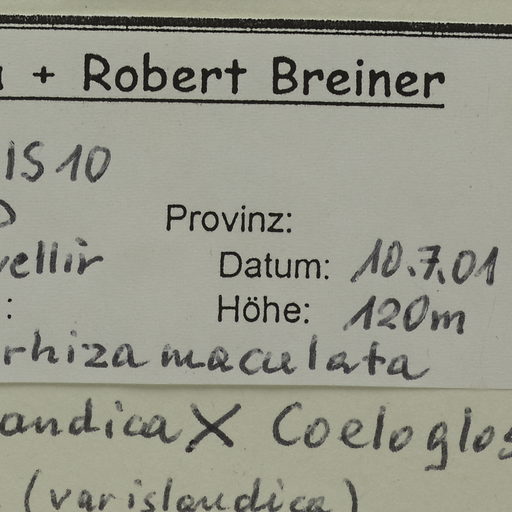 + Robert Breiner
IS 10
Provinz:
vellir Datum: 10.7.01
: Höhe: 120m
rhiza maculata
andica X Coeloglos
(var islandica)